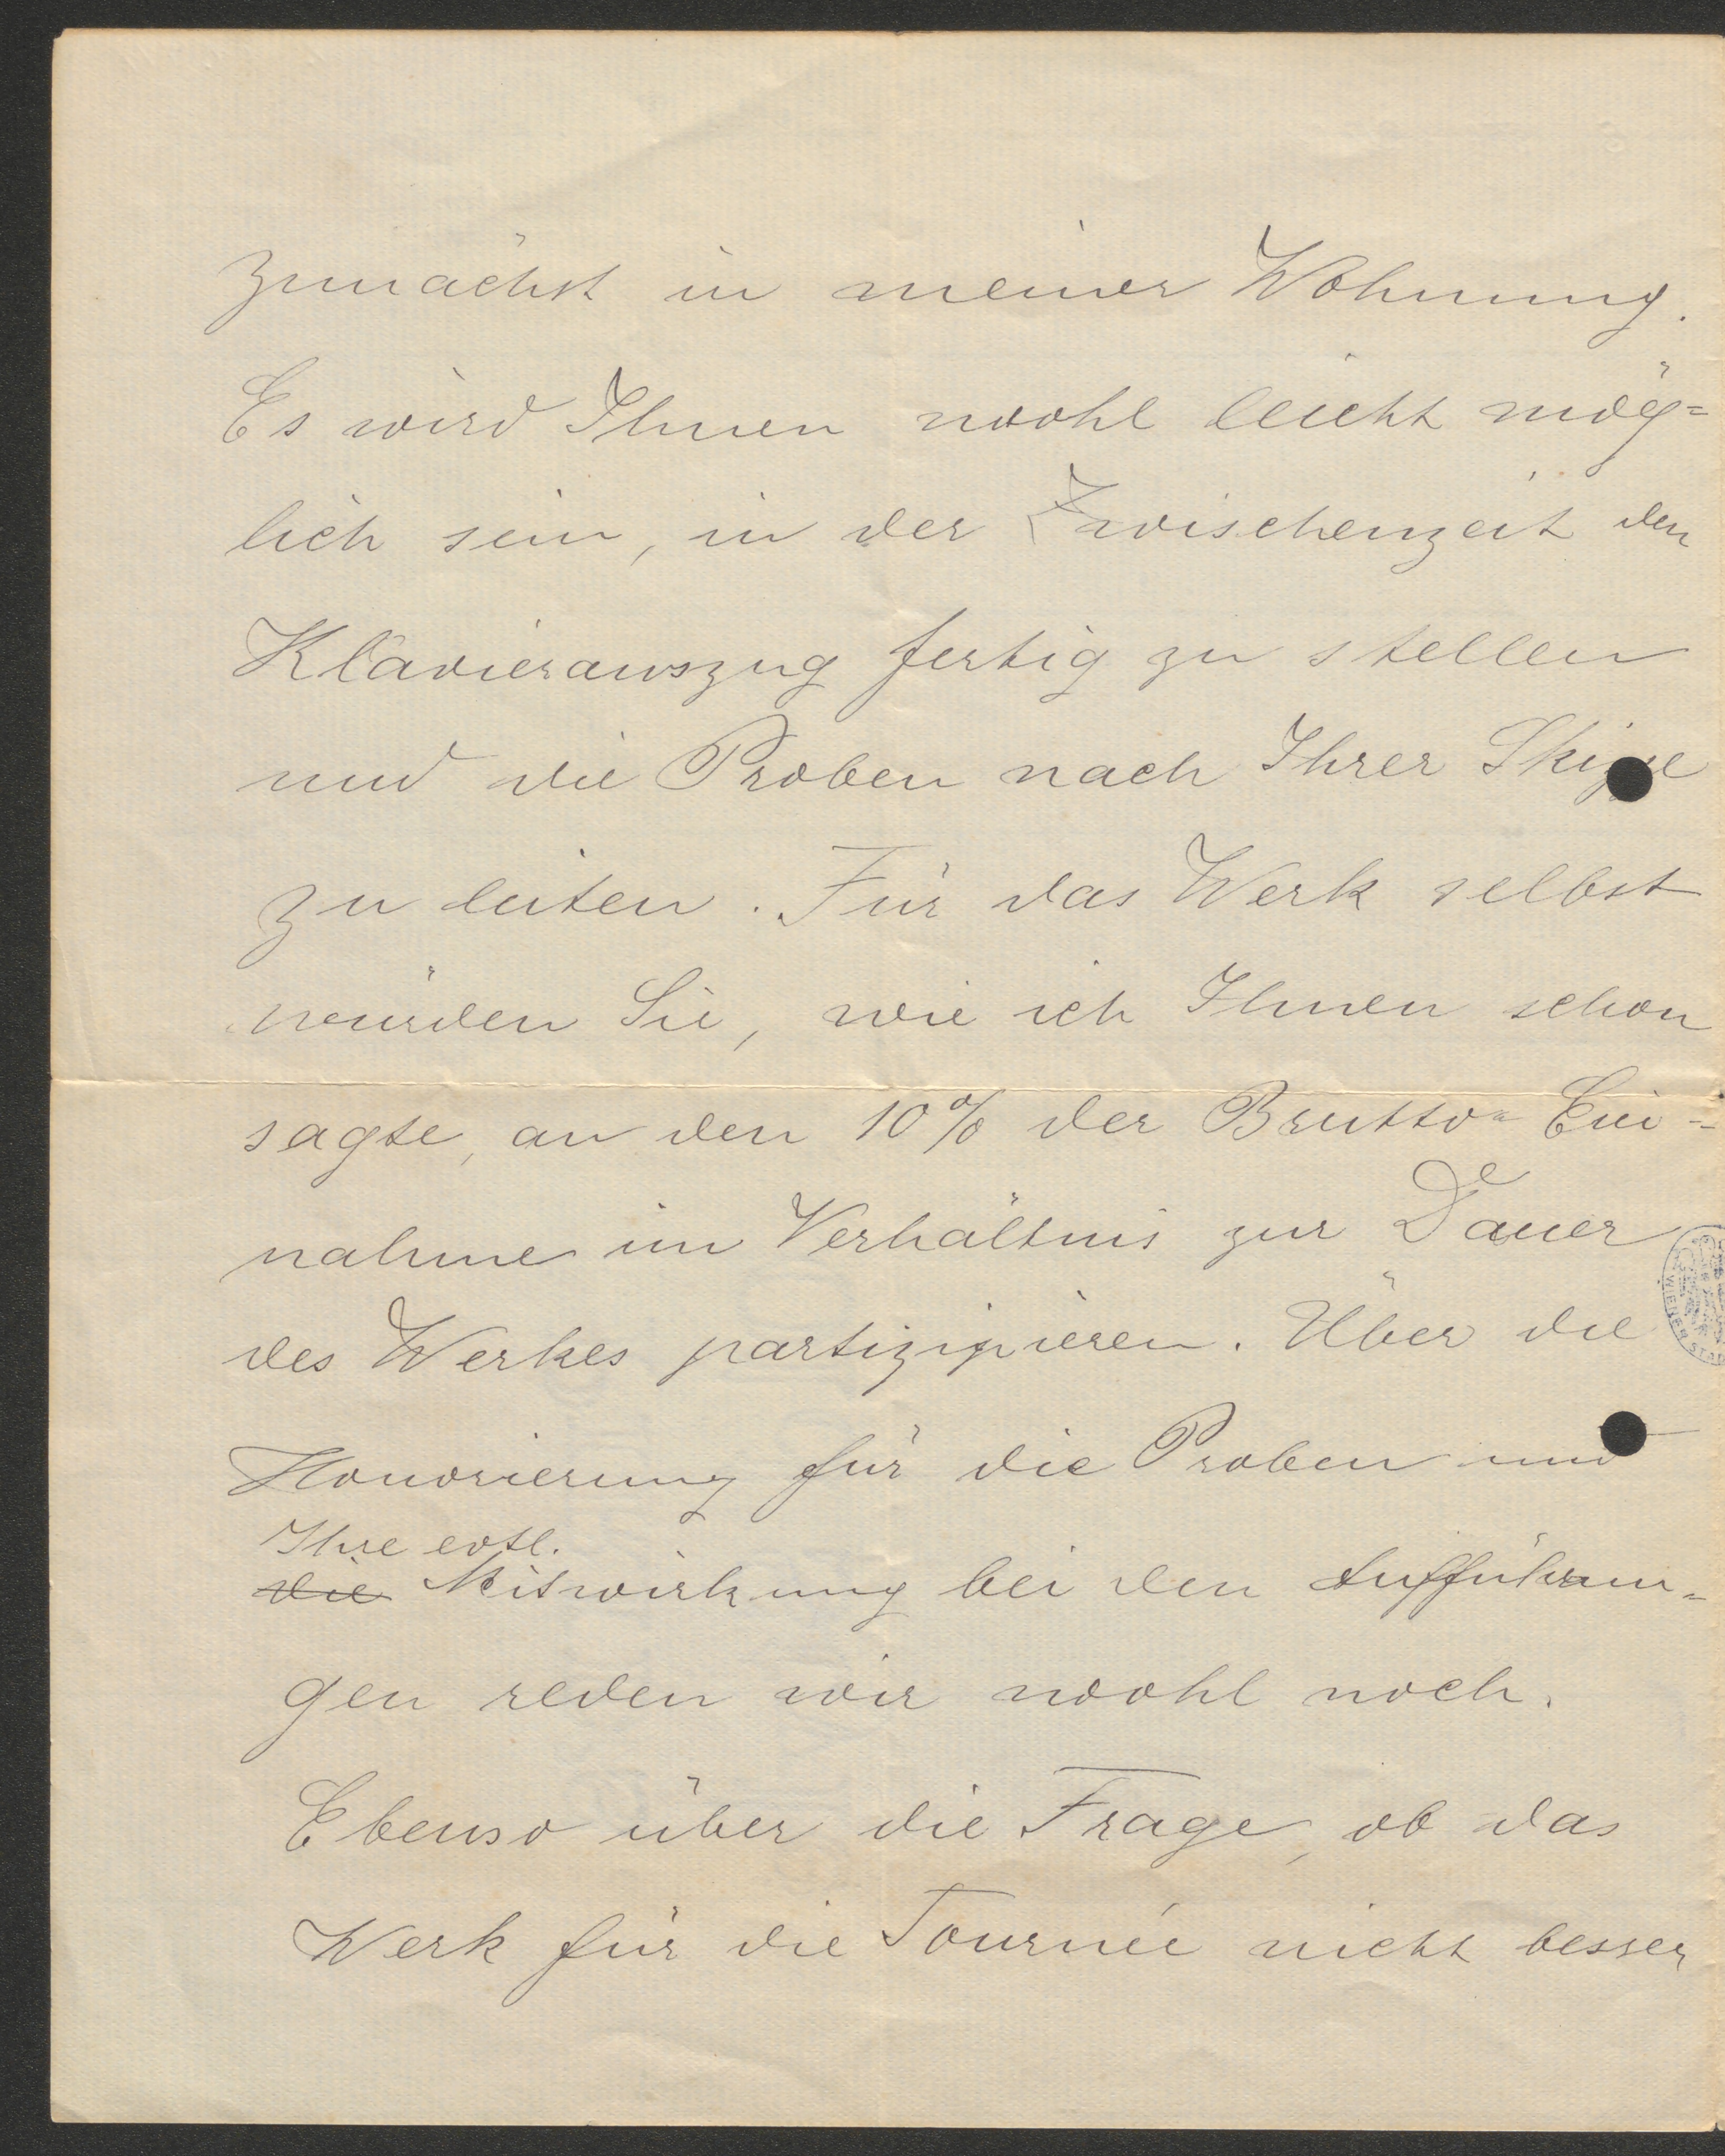 zunächst in meiner Wohnung.
Es wird Ihnen wohl leicht mög=
lich sein, in der Zwischenzeit den
Klavierauszug fertig zu stellen
und die Proben nach Ihrer Skizze
zu leiten. Für das Werk selbst
würden Sie, wie ich Ihnen schon
sagte, an den 10% der Brutto=Ein=
nahme im Verhältnis zur Dauer
des Werkes partizipieren. Über die
Honorierung für die Proben und
Ihre evtl.
die Mitwirkung bei den Aufführun=
gen reden wir wohl noch.
Ebenso über die Frage, ob das
Werk für die Tournée nicht besser
WIENER STAD